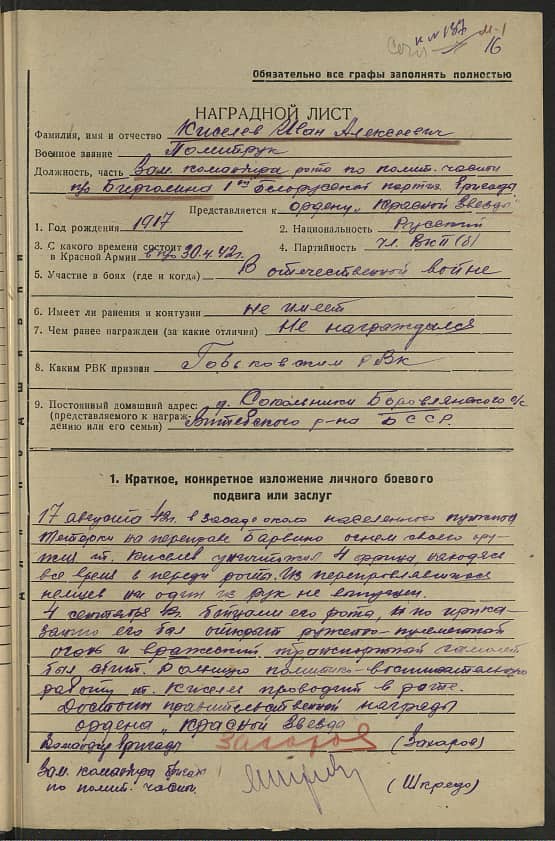 к №157 м-1
16
Обязательно все графы заполнять полностью
НАГРАДНОЙ ЛИСТ
Фамилия, имя и отчество Киселев Иван Алексеевич
Военное звание Политрук
Должность, часть Зам. командира роты по полит. части
п/о Бирюлина 1ой Белорусской партиз. бригады
Представляется к ордену „Красной Звезды"
1. Год рождения 1917 2. Национальность Русский
3. С какого времени состоит
в Красной Армии в п/о 30.4.42г. 4. Партийность чл. ВКП(б)
5. Участие в боях (где и когда) В отечественной войне
6. Имеет ли ранения и контузии не имеет
7. Чем ранее награжден (за какие отличия) Не награждался
8. Каким РВК призван РВК
9. Постоянный домашний адрес: д. Сокольники с/с
(представляемого к награж-
дению или его семьи) Витебского р-на БССР.
1. Краткое, конкретное изложение личного боевого
подвига или заслуг
17 августа 42г. в засаде около населенного пункта
на переправе Барвино огнем своего ору-
жия т. Киселев уничтожил 4 фрица, находясь
все время в переди роты. Из переправлявшихся
немцев ни один из рук не
4 сентября 42г. его рота, и по прика-
занию его был открыт ружейно-пулеметный
огонь и вражеский транспортный самолет
был сбит. Большую политико-воспитательную
работу т. Киселев проводит в роте.
Достоин правительственной награды
ордена „Красной Звезды
Командир бригады Захаров (Захаров)
Зам. командира бригады
по полит. части (Шкредо)